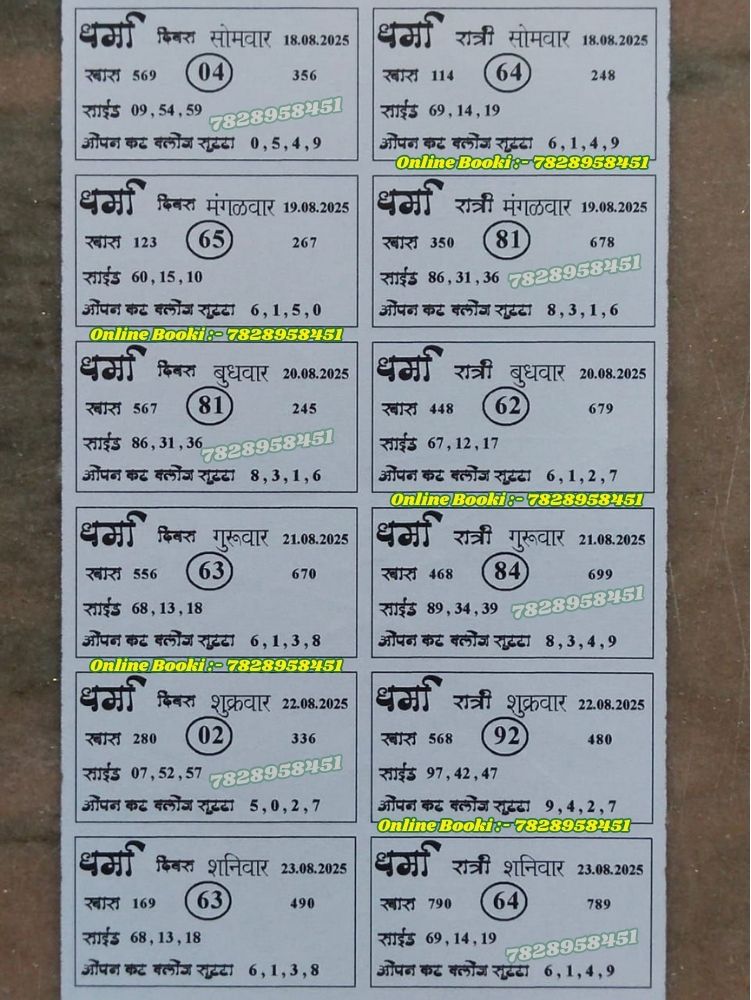 धर्मा दिवस सोमवार 18.08.2025
खास 569 04 356
साईड 09,54,59
7828958451
ओपन कट क्लोज सुट्टा 0,5,4,9
धर्मा रात्री सोमवार 18.08.2025
खास 114 64 248
साईड 69,14,19
ओपन कट क्लोज सुट्टा 6,1,4,9
Online Booki :- 7828958451
धर्मा दिवस मंगळवार 19.08.2025
खास 123 65 267
साईड 60,15,10
ओपन कट क्लोज सुट्टा 6,1,5,0
Online Booki :- 7828958451
धर्मा रात्री मंगळवार 19.08.2025
खास 350 81 678
साईड 86,31,36
7828958451
ओपन कट क्लोज सुट्टा 8,3,1,6
धर्मा दिवस बुधवार 20.08.2025
खास 567 81 245
साईड 86,31,36
7828958451
ओपन कट क्लोज सुट्टा 8,3,1,6
धर्मा रात्री बुधवार 20.08.2025
खास 448 62 679
साईड 67,12,17
ओपन कट क्लोज सुट्टा 6,1,2,7
Online Booki :- 7828958451
धर्मा दिवस गुरूवार 21.08.2025
खास 556 63 670
साईड 68,13,18
ओपन कट क्लोज सुट्टा 6,1,3,8
Online Booki :- 7828958451
धर्मा रात्री गुरूवार 21.08.2025
खास 468 84 699
साईड 89,34,39
7828958451
ओपन कट क्लोज सुट्टा 8,3,4,9
धर्मा दिवस शुक्रवार 22.08.2025
खास 280 02 336
साईड 07,52,57
7828958451
ओपन कट क्लोज सुट्टा 5,0,2,7
धर्मा रात्री शुक्रवार 22.08.2025
खास 568 92 480
साईड 97,42,47
ओपन कट क्लोज सुट्टा 9,4,2,7
Online Booki :- 7828958451
धर्मा दिवस शनिवार 23.08.2025
खास 169 63 490
साईड 68,13,18
ओपन कट क्लोज सुट्टा 6,1,3,8
धर्मा रात्री शनिवार 23.08.2025
खास 790 64 789
साईड 69,14,19
7828958451
ओपन कट क्लोज सुट्टा 6,1,4,9